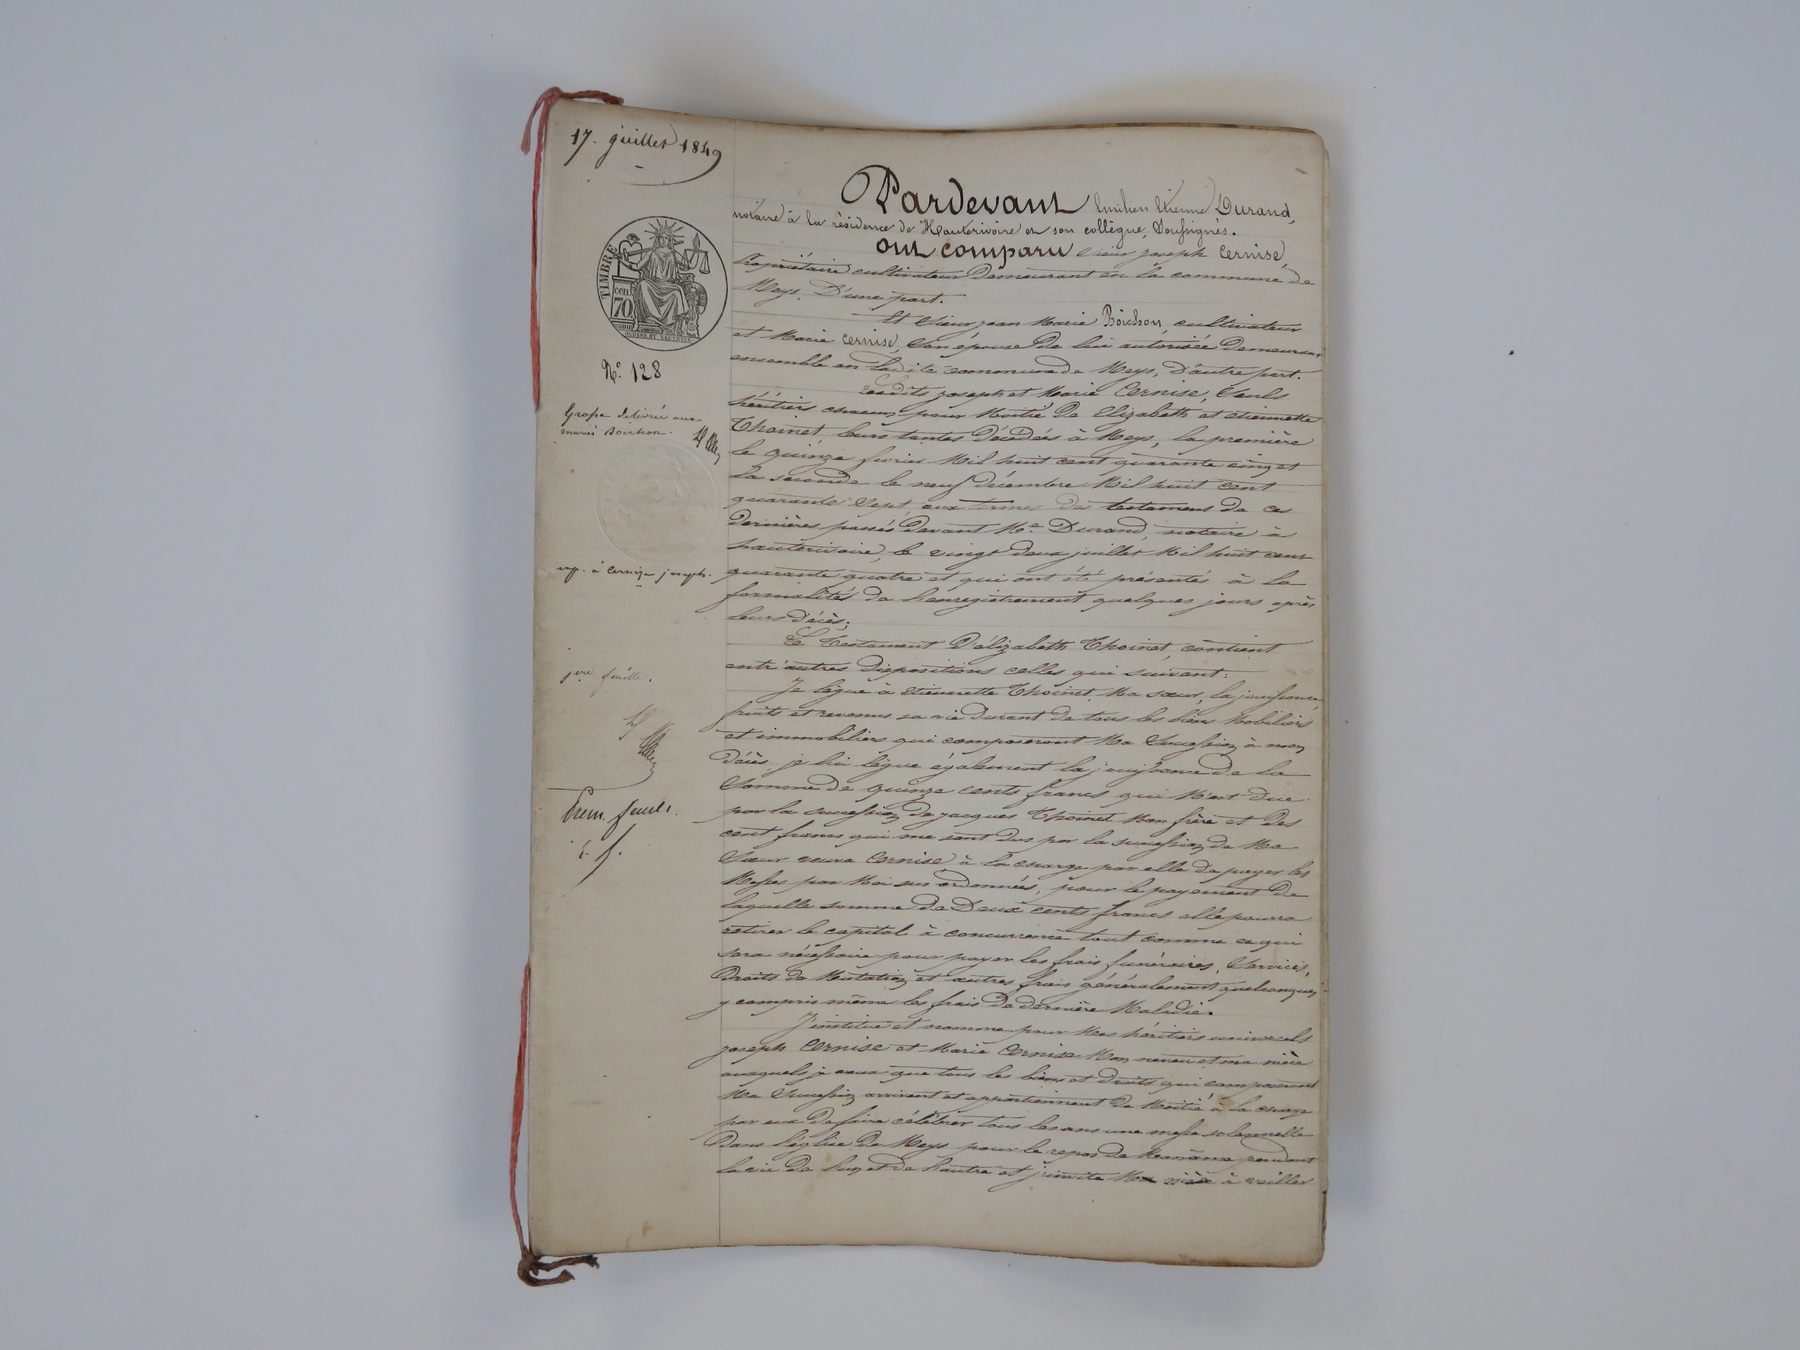 17. juillet 1849
TIMBRE
cen.
70
N.º 128
Grosse délivrée aux
mariés Boichon.
exp. à Cernise joseph.
1ere feuille.
Prem. feuill.
Pardevant Etienne Durand,
notaire à la résidence de Hauterivoire et son collègue, Soussignés.
ont comparu Sieur joseph Cernise,
Propriétaire cultivateur Demeurant en la commune de
Meys, D'une part.
Et Sieur jean Marie Boichon, cultivateur
et Marie Cernise, Son épouse de lui autorisée Demeurant
ensemble en ladite commune de Meys, D'autre part.
Lesdits joseph et Marie Cernise, Seuls
héritiers chacun pour Moitié De Elizabeth et etiennette
Thoinet leurs tantes Décédées à Meys, la première
le quinze fevrier Mil huit cent quarante cinq et
la seconde le neuf décembre Mil huit cent
quarante Sept aux termes des testaments de ces
dernières passés Devant Me Durand, notaire à
hauterivoire, le vingt deux juillet Mil huit cent
quarante quatre et qui ont été présentés à la
formalités de l'enregistrement quelques jours après
leurs décès;
Le Testament D'élizabeth Thoinet, contient
entr'autres Dispositions celles qui suivent:
Je lègue à etiennette Thoinet, Ma sœur, la jouissance
fruits et revenus sa vie durant de tous les biens Mobiliers
et immobiliers qui composeront Ma Succession à mon
Décès. je lui lègue également la jouissance de la
Somme de quinze cents francs qui M'est Due
par la succession de jacques Thoinet Mon frère et Des
cent francs qui me sont dus par la succession de Ma
Sœur veuve Cernise à la charge par elle de payer les
Messes par Moi sus ordonnées, pour le payement De
laquelle somme de Deux cents francs elle pourra
retirer le capital à concurrence tout comme ce qui
sera nécessaire pour payer les frais funéraires, Services,
Droits de Mutation et autres frais généralement quelconques
y compris même les frais De dernière Maladie.
J'institue et nomme pour Mes héritiers universels
joseph Cernise et Marie Cernise Mon neveu et ma nièce
auxquels je veux que tous les biens et droits qui composeront
Ma Succession arrivent et appartiennent de Moitié à la charge
par eux De faire célébrer tous les ans une messe solennelle
Dans l'église De Meys pour le repos de Mon âme pendant
la vie de l'un et de l'autre et j'invite Ma nièce à veiller